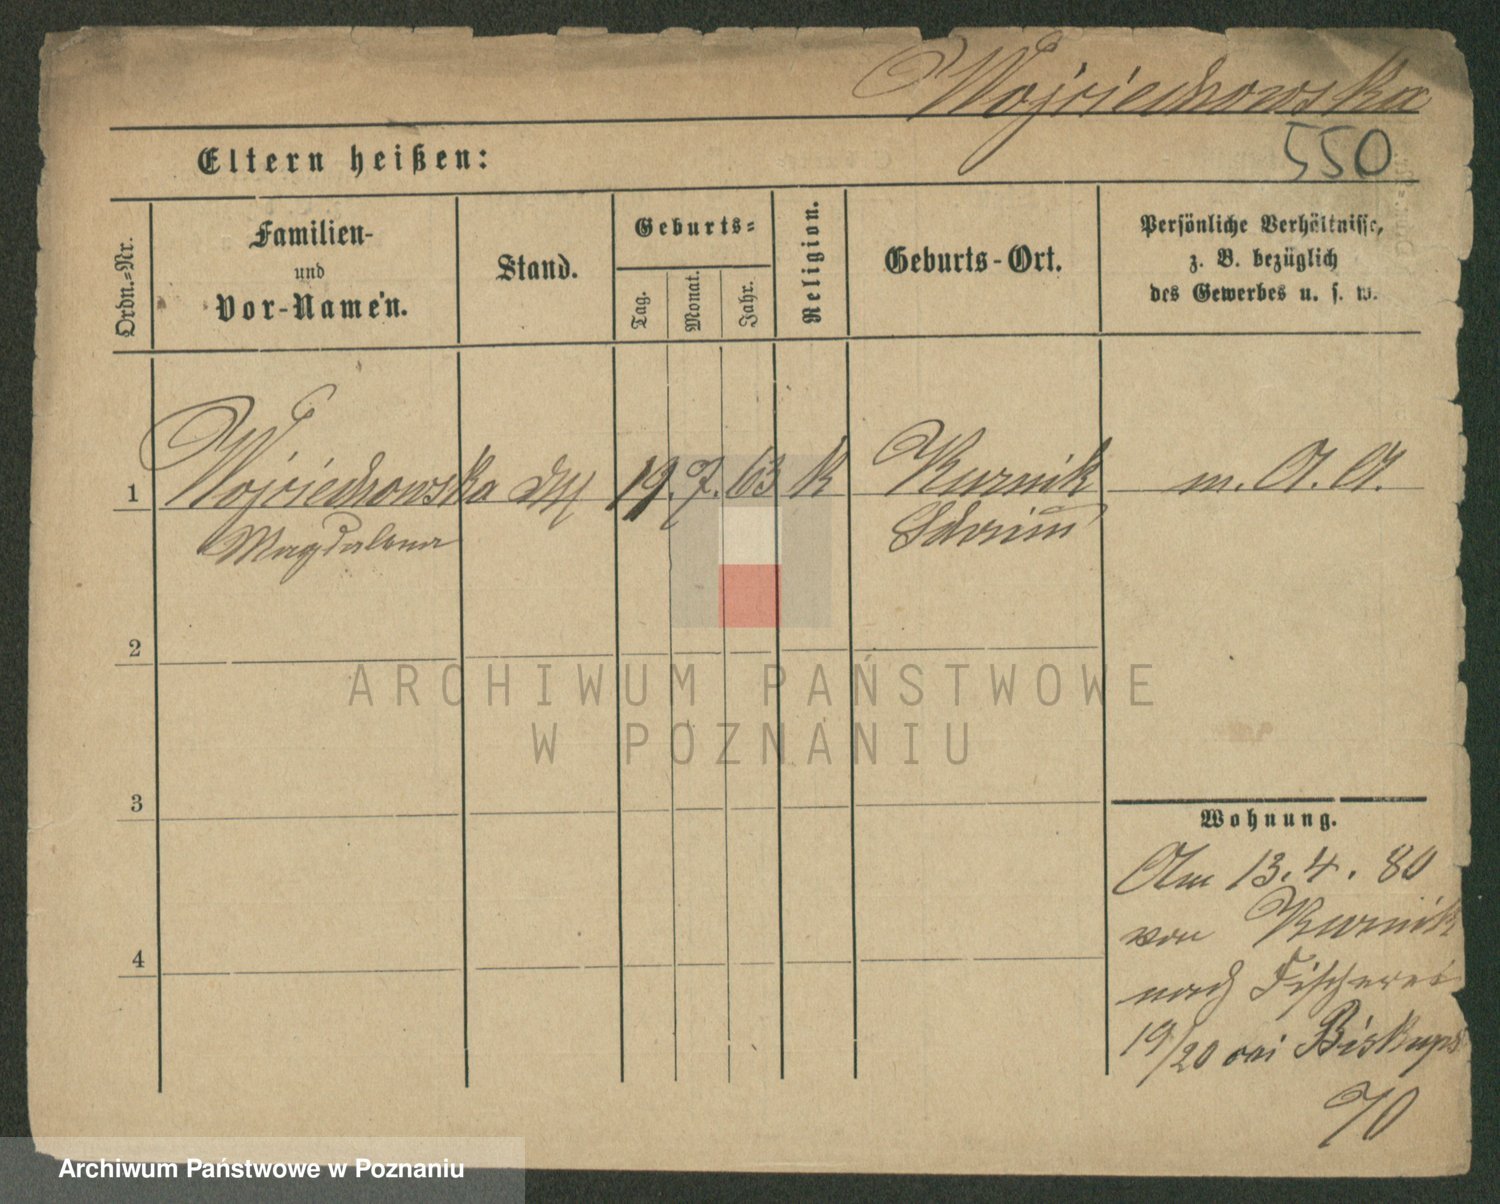 Wojciechowska
550
Eltern heißen:
Ordn.-Nr.
Familien-
und
Vor-Namen.
Stand.
Geburts-
Tag.
Monat.
Jahr.
Religion.
Geburts-Ort.
Persönliche Verhältnisse,
z. B. bezüglich
des Gewerbes u. s. w.
1 Wojciechowska 19. 7. 63 K Kurnik m. A. A.
Magdalena Schrimm
2
3
4
Wohnung.
Am 13. 4. 80
von Kurnik
nach Fischerei
19/20 Biskups
70
ARCHIWUM PAŃSTWOWE
W POZNANIU
Archiwum Państwowe w Poznaniu